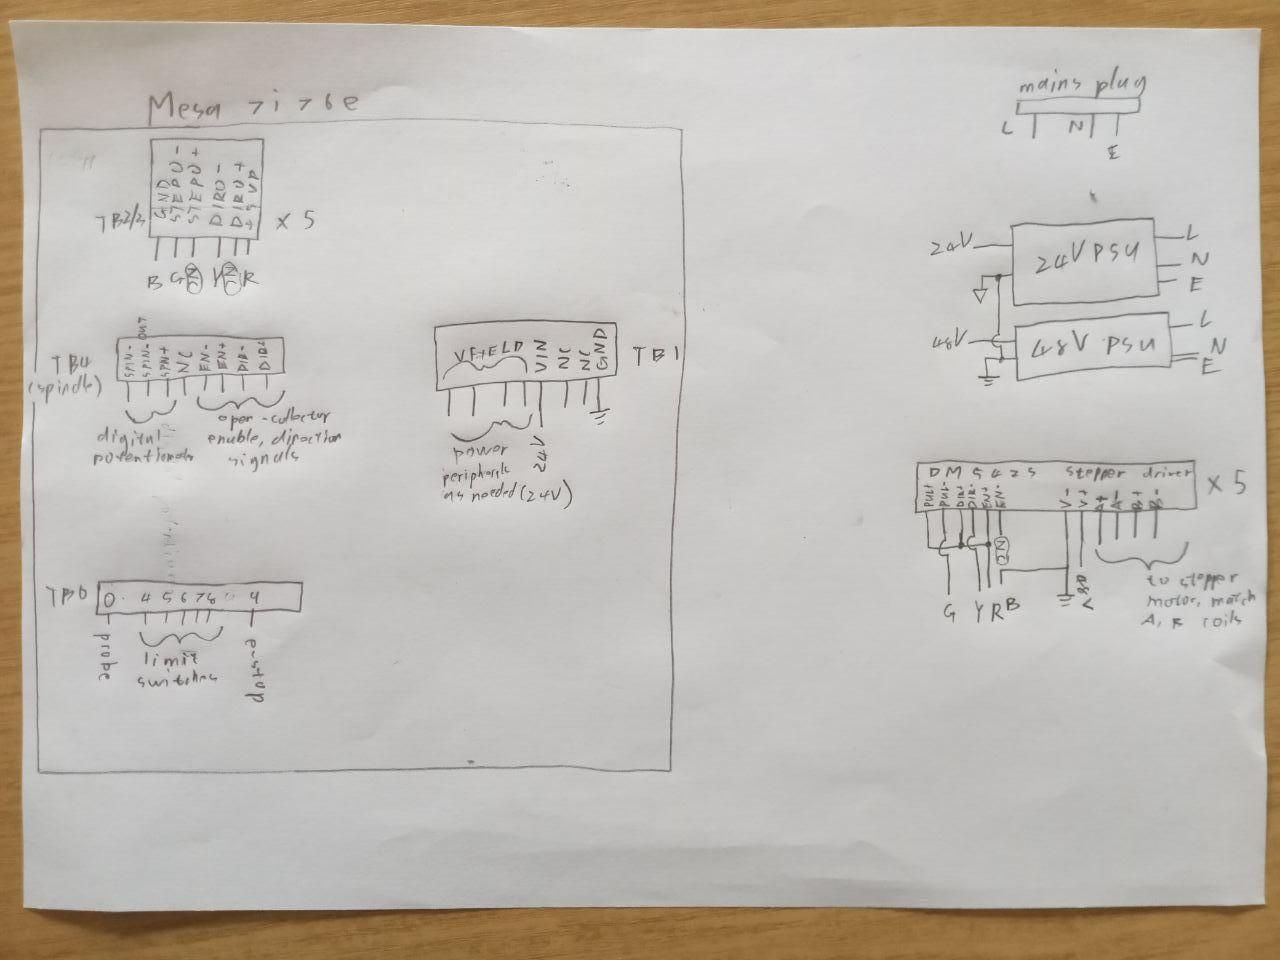 Mesa 7i76e
TB2/3
GND
STEP0-
STEP0+
DIR0-
DIR0+
+5VP
x 5
B G NC Y NC R
TB4
(spindle)
SPIN-
SPIN-OUT
SPIN+
NC
EN-
EN+
DIR-
DIR+
digital
potentiomets
open-collector
enable, direction
signals
VFIELD
VIN
NC
NC
GND
TB1
power
peripherals
as needed (24V)
24V
TB6
0 4 5 6 7 8 9
probe
limit
switches
e-stop
mains plug
L N E
24V
24V PSU
L
N
E
48V
48V PSU
L
N
E
DM542S stepper driver
x 5
PUL+
PUL-
DIR+
DIR-
EN+
EN-
V-
V+
A+
A-
B+
B-
NC
G Y R B
48V
to stepper
motor, match
A, B coils